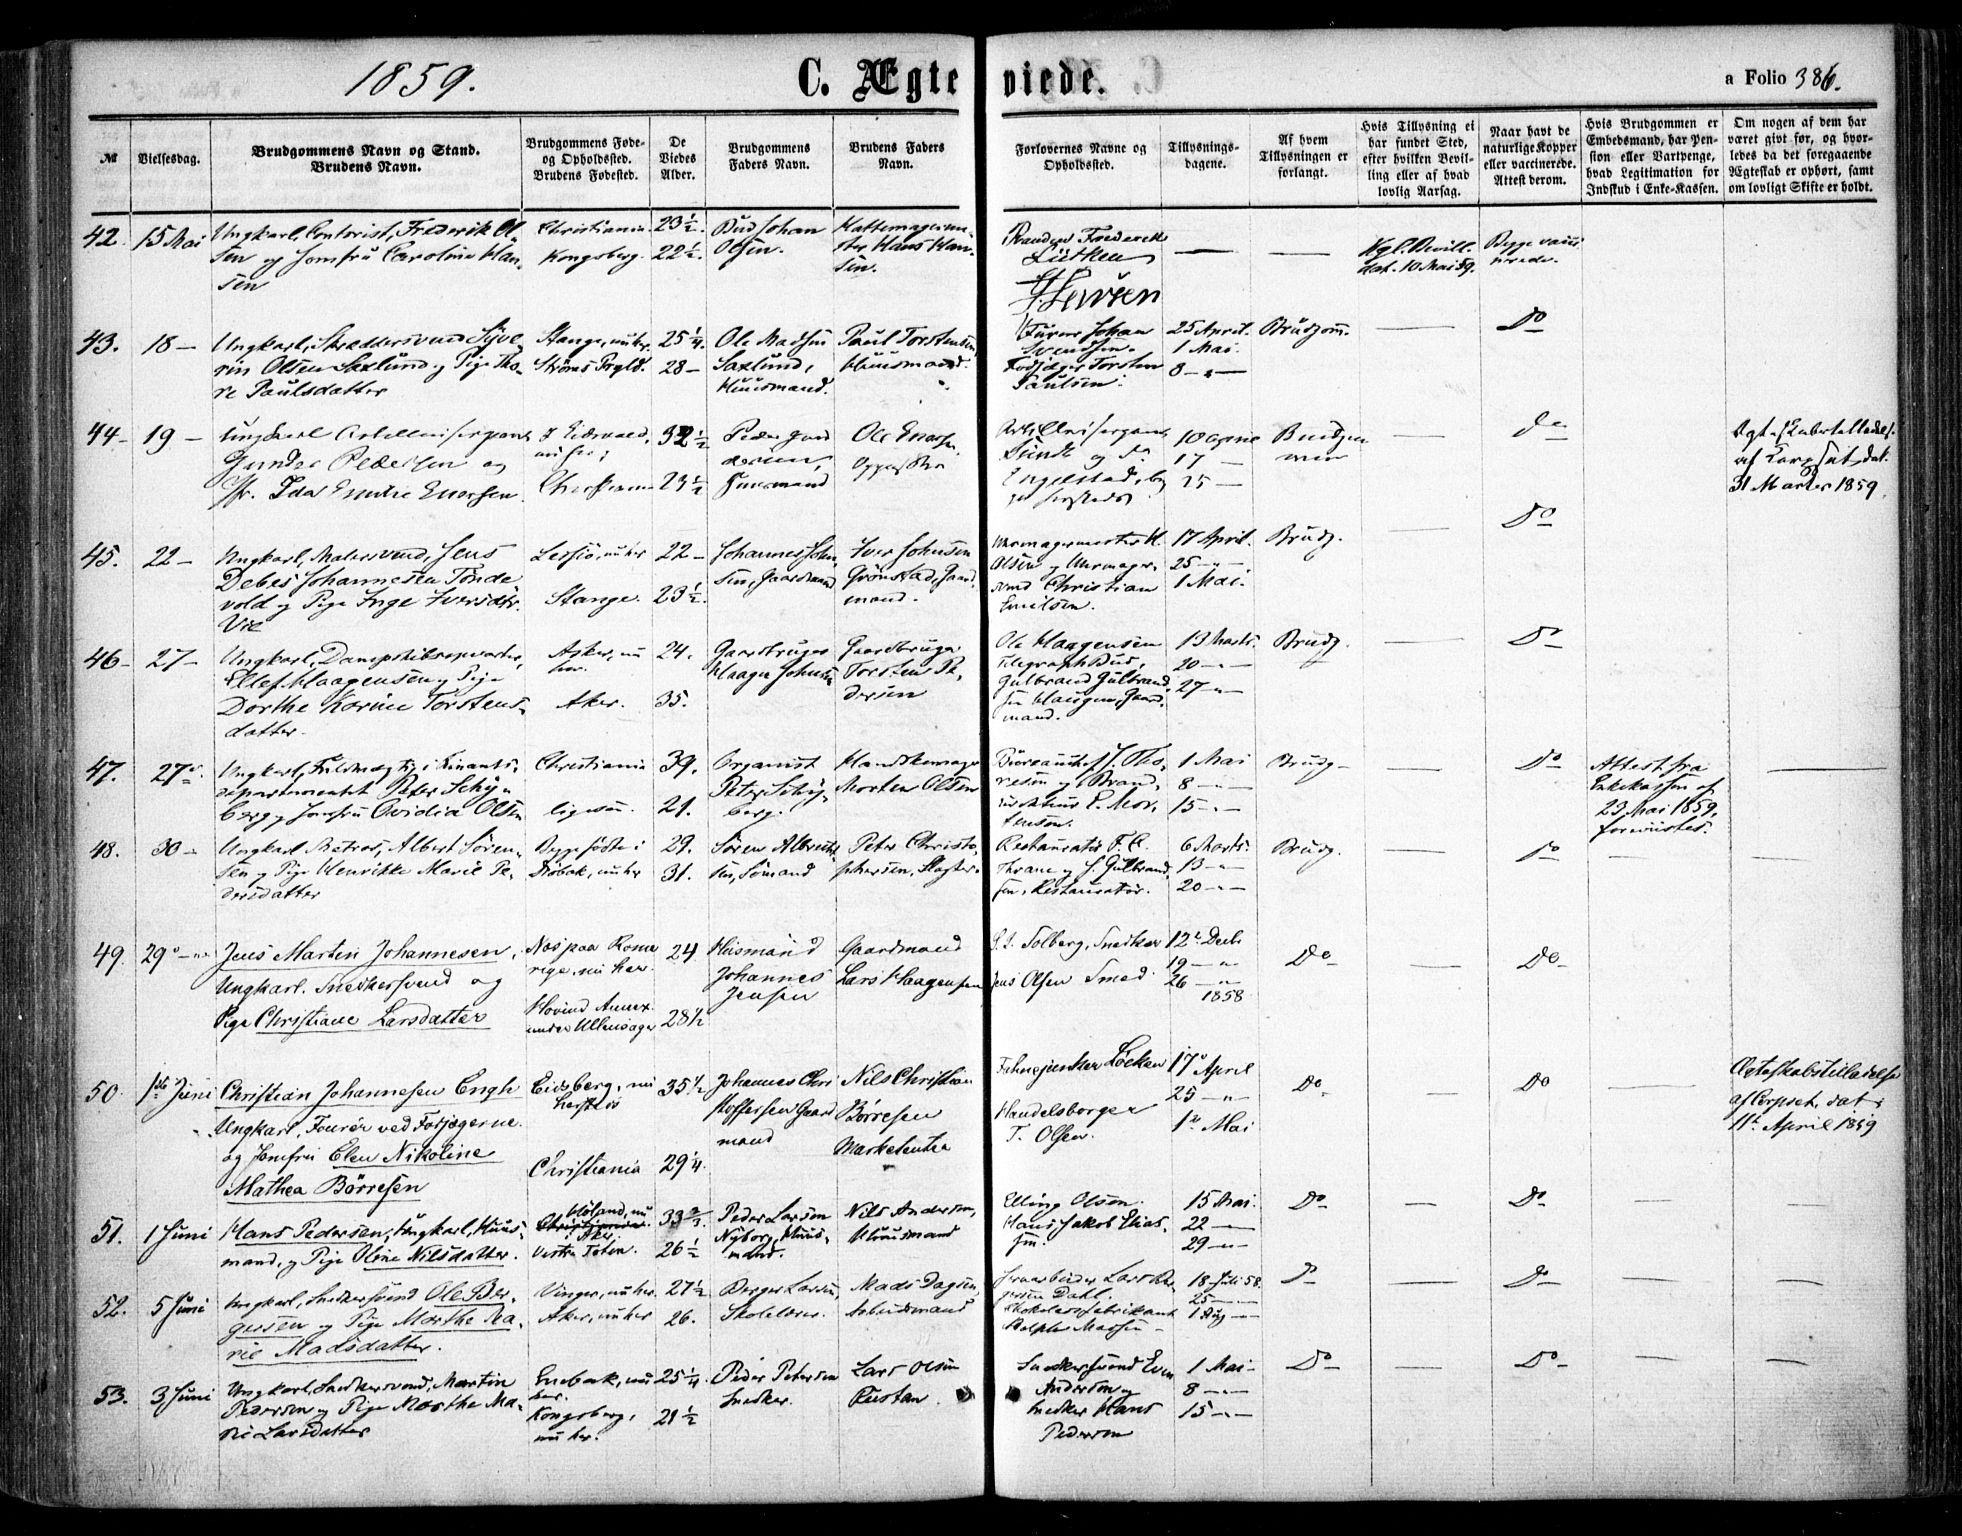 1859.
C. Ægte viede.
a Folio 386.
№
Vielsesdag.
Brudgommens Navn og Stand.
Brudens Navn.
Brudgommens Føde- og Opholdssted.
Brudens Fødested.
De Viedes Alder.
Brudgommens Faders Navn.
Brudens Faders Navn.
Forlovernes Navne og Opholdssted.
Tillysningsdagene.
Af hvem Tillysningen er forlangt.
Hvis Tillysning ei har fundet Sted, efter hvilken Bevilling eller af hvad lovlig Aarsag.
Naar havt de naturlige Kopper eller vaccinerede. Attest derom.
Hvis Brudgommen er Embedsmand, har Pension eller Vartpenge, hvad Legitimation for Indskud i Enke-Kassen.
Om nogen af dem har været givt før, og hvorledes da det foregaaende Ægteskab er ophørt, samt om lovligt Skifte er holdt.
42. 15 Mai Ungkarl, Contorist, Frederik Ol-
sen og Jomfru Caroline Han-
sen
Christiania
Kongsberg.
23½.
22½.
Bud Johan
Olsen.
Hattemagerme-
ster Hans Han-
sen.
Frederik
Lütken
Kgl. Bevill.
dat. 10 Mai 59.
Begge vacci-
nerede.
43. 18 — Ungkarl, Skræddersvend Syve-
rin Olsen Saxlund og Pige Tho-
re Paulsdatter
Stange, nu her.
Strøms Prgld.
25¼.
28 —
Ole Madsen
Saxlund,
Huusmand.
Paul Torstensen,
Huusmand.
Johan
Svendsen.
Torsten
Paulsen.
25 April.
1 Mai.
8 — " —
Brudgom.
Do
44 — 19 — Ungkarl
Gunder Pedersen og
Jfr. Ida Emilie Enersen.
Eidsvold,
nu her;
Christiania
32½
23½
Peder
Huusmand
Ole Enersen
10 April
17 —
25 —
Brudgom-
men
Do
af Korpset, dat.
31 Marts 1859.
45. 22 — Ungkarl, Malersvend, Jens
Debes Johannesen Tønde-
vold og Pige Inge Iversdtr.
Vie
nu her
Stange.
22 —
23½.
Johannes John-
sen, Gaardmand
Iver Johnsen
Grønstad, Gaard-
mand.
Uhrmagermester H.
Olsen og Uhrmager-
svend Christian
Emilsen.
17 April.
25 — " —
1 Mai.
Brudg.
Do
46 — 27 — Ungkarl,
Ellef Haagensen og Pige
Dorthe Karine Torstens-
datter.
Asker, nu
her.
Aker.
24.
35.
Gaardbruger
Haagen Johnsen
Gaardbruger
Torsten Pe-
dersen
Ole Haagensen
Telegraph Bud,
Gulbrand Gulbrand-
sen Haugen, Gaard-
mand.
13 Marts.
20 — " —
27 — " —
Brudg.
Do
47. 27de Ungkarl, Fuldmægtig i Finants-
departementet Peter Schy-
berg og Jomfru Ovidia Olsen
Christiania
ligesaa.
39.
21.
Organist
Peter Schy-
berg.
Handskemager
Morten Olsen
Bureauchef J. Tho-
resen og Brand-
E. Mor-
tensen.
1 Mai
8 — " —
15 — " —
Brudg —
Do
Attest fra
Enkekassen af
23 Mai 1859,
forevistes.
48. 30 — Ungkarl Matros, Albert Søren-
sen og Pige Henrikke Marie Pe-
dersdatter
Begge fødte i
Drøbak, nu her
29.
31.
Søren Albrecht-
sen, Sømand
Peter Christo-
phersen, Slagter.
Restauratør F. E.
Thrane og J. Gulbrand-
sen, Restauratør.
6 Marts.
13 — " —
20 — " —
Brudg.
Do
49. 29de — Jens Martin Johannesen,
Ungkarl. Snedkersvend og
Pige Christiane Larsdatter
Næs paa Rome-
rige, nu her.
Hovind Annex
under Ullensager
24
28½
Husmand
Johannes
Jensen
Gaardmand
Lars Haagensen
Solberg, Snedker
Jens Olsen Smed.
12te Decbr
19 — " —
26 — " —
1858.
Do
Do
50. 1ste Juni Christian Johannesen Engh
Ungkarl, Fourér ved Forjægerne.
og Jomfru Elen Nikoline
Mathea Børresen
Eidsberg, nu
Christiania
35½
29¼.
Johannes Chri-
stoffersen Gaard-
mand
Nils Christian
Børresen
Marketenter
Fanejunker Løcken
Handelsborger
T. Olsen.
17de April
25 — " —
1ste Mai
Do
Do
Ægteskabstilladelse
af Corpset, dat.
11te April 1859
51. 1 Juni Hans Pedersen, Ungkarl, Huus-
mand, og Pige Oline Nilsdatter.
Høland, nu
i Aker.
Vestre Toten.
33⅔.
26½
Peder Larsen
Nyborg, Huus-
mand.
Nils Andersen,
Huusmand
Elling Olsen.
Hans Jakob Elias-
sen.
15 Mai.
22 —
29 — " —
Do
Do
52. 5 Juni Ungkarl, Snedkersvend Ole Ber-
gersen og Pige Marthe Ma-
rie Madsdatter.
Vinger, nu her.
Aker, nu her
27½
26.
Berger Larsen,
Skolelærer.
Mads Dagsen,
Arbeidsmand
Lars Ber-
gersen Dahl.
Chokoladefabrikant
18 Juli 58.
25 — —
1 Aug —
Do
Do
53. 3 Juni Ungkarl, Snedkersvend, Martin
Pedersen og Pige Marthe Ma-
rie Larsdatter
Enebak, nu
her.
Kongsberg,
nu her.
25¼
21½
Peder Petersen
Snedker.
Lars Olsen
Snedkersvend Even
Andersen og
Snedker Hans
Pedersen
1 Mai
8 — " —
15 — " —
Do
Do